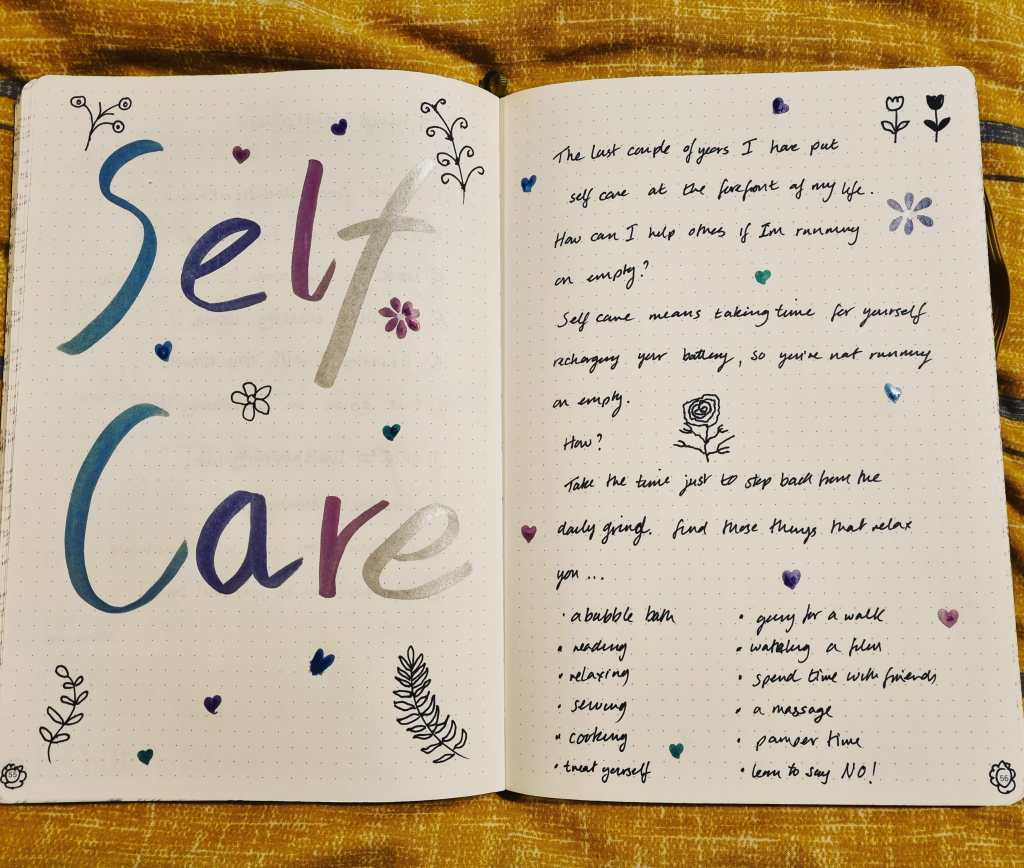 Self
Care
55
The last couple of years I have put
self care at the forefront of my life.
How can I help others if I'm running
on empty?
Self care means taking time for yourself
recharging your battery, so you're not running
on empty.
How?
Take the time just to step back from the
daily grind. Find those things that relax
you...
• a bubble bath
• reading
• relaxing
• sewing
• cooking
• treat yourself
• going for a walk
• watching a film
• spend time with friends
• a massage
• pamper time
• learn to say NO!
56